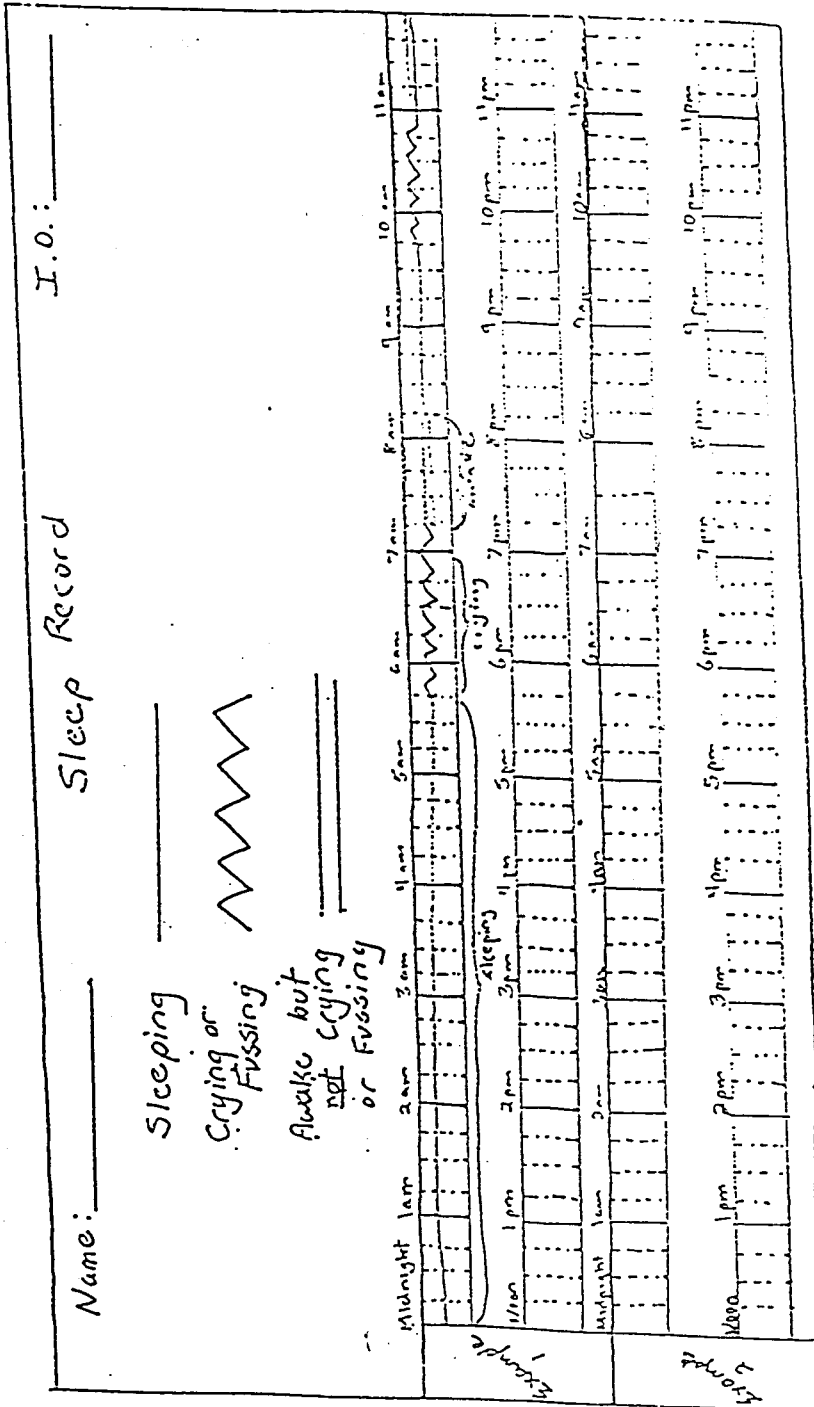 Name: Sleep Record I.D.:
Sleeping
Crying or
Fussing
Awake but
not Crying
or Fussing
Midnight 1am 2am 3am 4am 5am 6am 7am 8am 9am 10am 11am
sleeping crying awake
Example
1
1pm 2pm 3pm 4pm 5pm 6pm 7pm 8pm 9pm 10pm 11pm
Midnight 1am 7am 10am 11am
Example
2
1pm 2pm 3pm 4pm 5pm 6pm 7pm 8pm 9pm 10pm 11pm